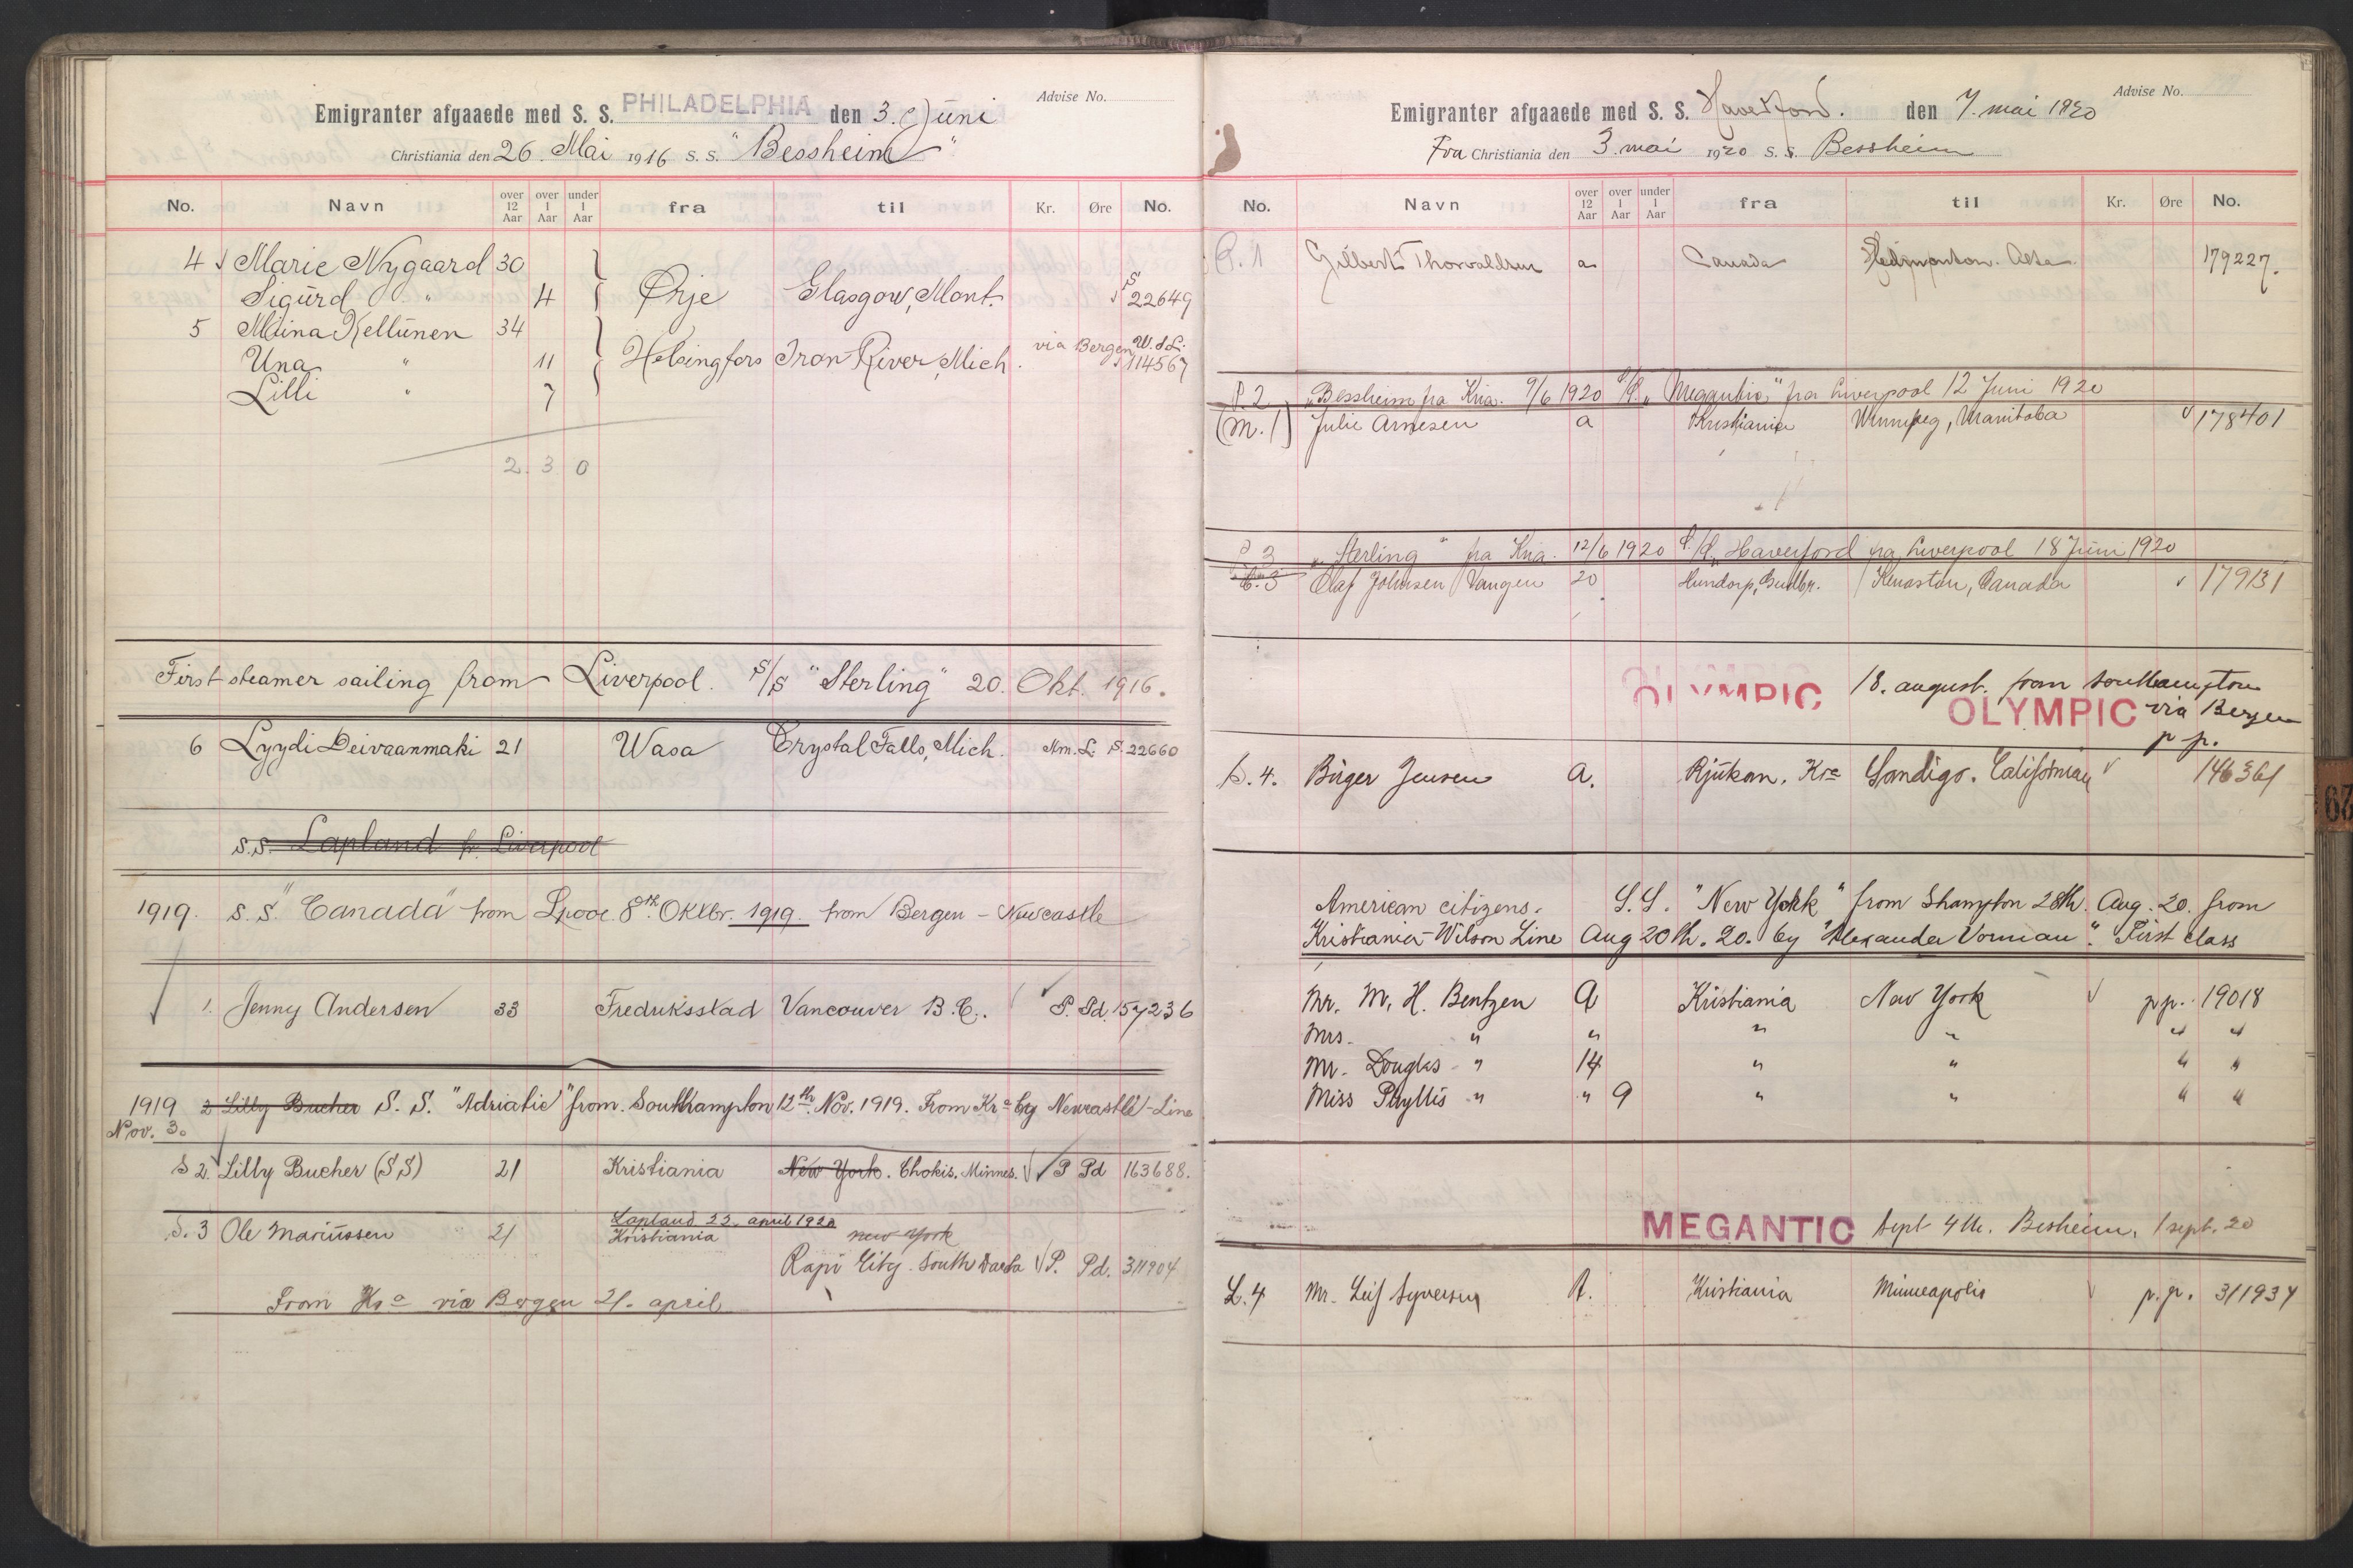 Advise No.
Emigranter afgaaede med S. S. PHILADELPHIA den 3. Juni
Christiania den 26. Mai 1916 S. S. "Bessheim"
No. Navn over 12 Aar over 1 Aar under 1 Aar fra til Kr. Øre No.
4 Marie Nygaard 30
Sigurd " 4 Ørje Glasgow, Mont. S 22649
5 Miina Kellunen 34
Una " 11 Helsingfors Iron River, Mich. via Bergen W. S. L. 114567
Lilli " 7
2. 3 0
First steamer sailing from Liverpool. S/S "Sterling" 20. Okt. 1916.
6 Lyydi Deivaanmaki 21 Wasa Crystal Falls, Mich. Am. L. S. 22660
S.S. Lapland fr. Liverpool
1919. S. S. "Canada" from Lpool 8th Oktbr. 1919. from Bergen - Newcastle
1. Jenny Andersen 33 Fredriksstad Vancouver B.C. P. Pd. 157236
1919 2 Lilly Bucher S. S. "Adriatic" from Southampton 12th Nov. 1919. From Kra by Newcastle-Line
Nov. 3.
S 2. Lilly Bucher (SS) 21 Kristiania New York. Chokis, Minnes. P Pd 163688.
Lapland 22. april 1920
S. 3 Ole Mariussen 21 Kristiania new york
Rapi City. South Dacta P. Pd. 311904
From Kra via Bergen 21. april
Advise No.
Emigranter afgaaede med S. S. Haverford. den 7. mai 1920
Fra Christiania den 3. mai 1920 S. S. Bessheim
No. Navn over 12 Aar over 1 Aar under 1 Aar fra til Kr. Øre No.
P. 1 Gilbert Thorvaldsen a Canada Edmonton. Alta 179227.
P. 2 "Bessheim fra Kria. 9/6 1920 "Megantic" fra Liverpool 12 Juni 1920
(M. 1) Julie Arnesen a Kristiania Winnipeg, Manitoba 178401
P 3 "Sterling" fra Kria. 12/6 1920 "Haverford fra Liverpool 18 Juni 1920
C. 3 Olaf Johnsen Vangen 20 Hundorp, Gudbr. Kenaston, Canada 179131
OLYMPIC 18. august. from Southampton
OLYMPIC via Bergen
p p.
S. 4. Birger Jensen A. Rjukan, Kra Sandigo. California 146361
American citizens. S.S. "New York" from Shampton 28th. Aug. 20. from
Kristiania - Wilson Line Aug 20th. 20. by "Alexander Vorman". First class
Mr. M. H. Bentzen A Kristiania New York pp. 19018
Mrs. " " " " " "
Mr. Douglas " 14 " " " "
Miss Phyllis " " 9 " " " "
MEGANTIC Sept 4th. Besheim, 1 sept. 20
L. 4 Mr. Leif Syversen A. Kristiania Minneapolis p. p. 311934